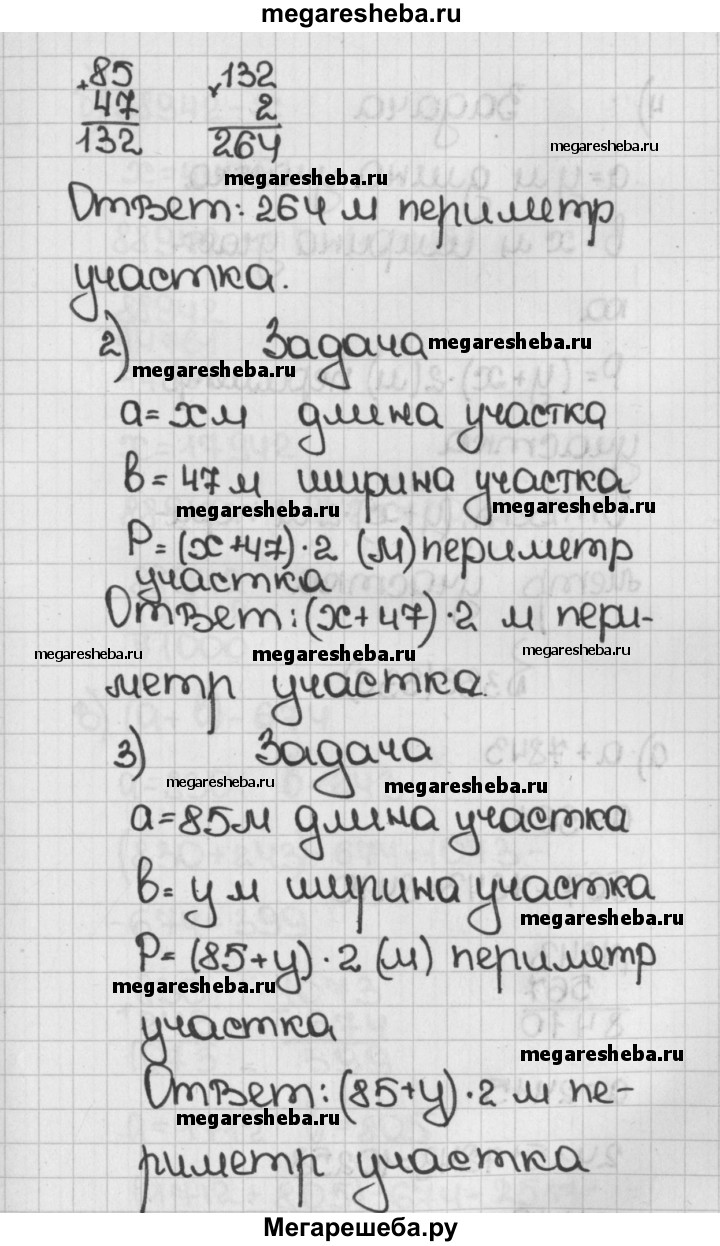 megaresheba.ru
+85 ×132
47 2
132 264
megaresheba.ru
megaresheba.ru
Ответ: 264 м периметр
участка.
2) Задача
megaresheba.ru
megaresheba.ru
a = x м длина участка
в = 47 м ширина участка
megaresheba.ru
megaresheba.ru
P = (x+47) · 2 (м) периметр
участка
Ответ: (x+47) · 2 м пери-
megaresheba.ru
megaresheba.ru
megaresheba.ru
метр участка
3) Задача
megaresheba.ru
megaresheba.ru
a = 85 м длина участка
в = y м ширина участка
megaresheba.ru
P = (85+y) · 2 (м) периметр
megaresheba.ru
участка
megaresheba.ru
Ответ: (85+y) · 2 м пе-
megaresheba.ru
риметр участка
Мегарешеба.ру